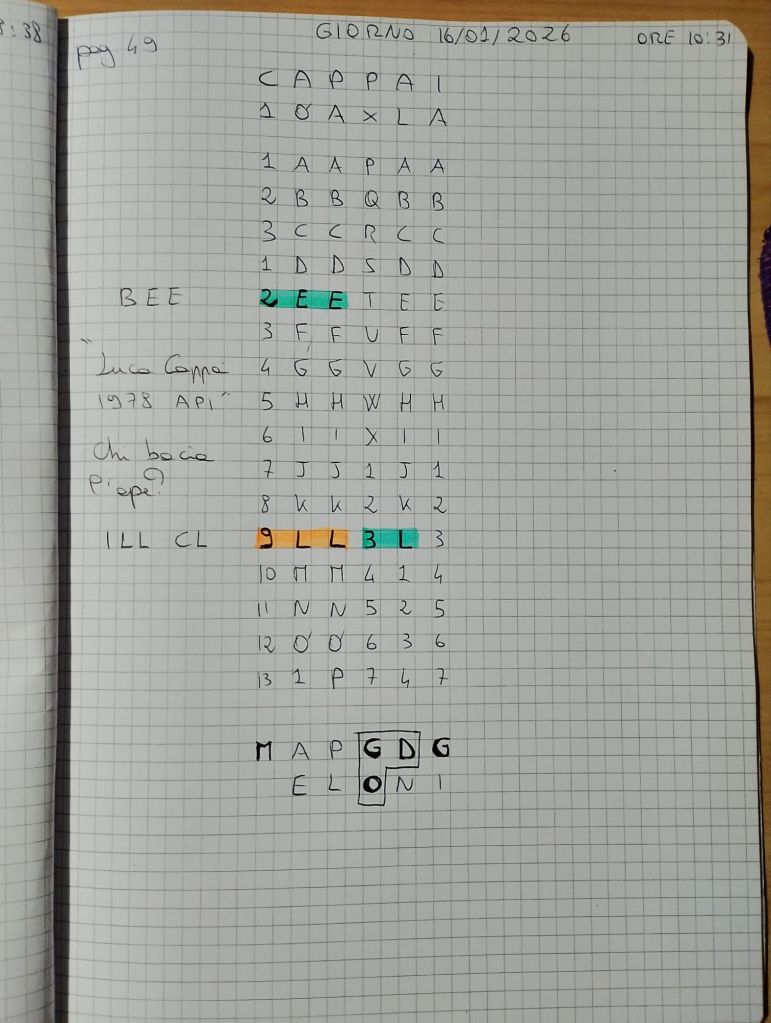 :38
GIORNO 16/01/2026 ORE 10:31
pag 49
C A P P A I
1 O A X L A
1 A A P A A
2 B B Q B B
3 C C R C C
1 D D S D D
BEE 2 E E T E E
3 F F U F F
"Luca Cappa 4 G G V G G
1978 API" 5 H H W H H
6 I I X I I
Chi bacia 7 J J 1 J 1
l'ape? 8 K K 2 K 2
ILL CL 9 L L 3 L 3
10 M M 4 1 4
11 N N 5 2 5
12 O O 6 3 6
13 1 P 7 4 7
M A P G D G
E L O N I